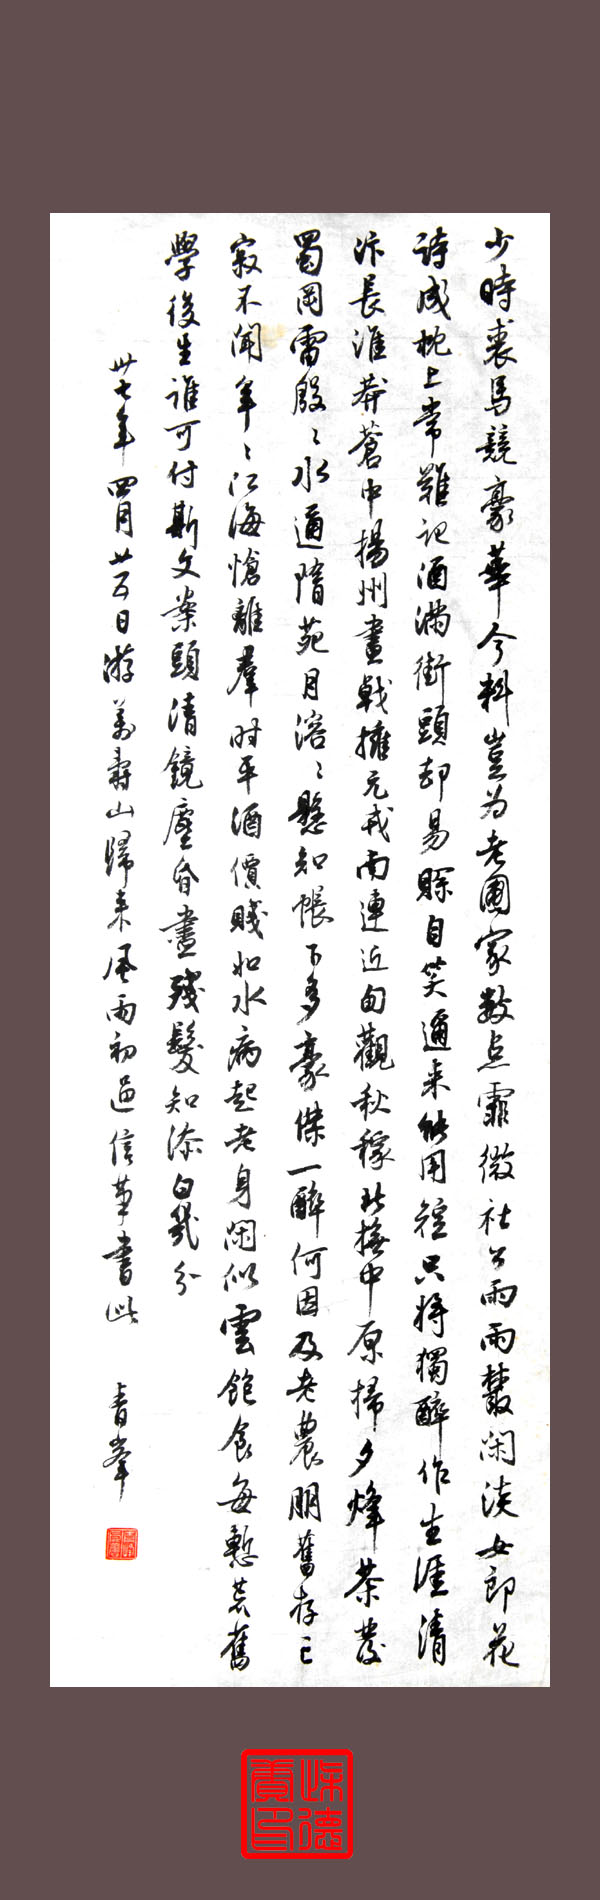 少時裘馬競豪華今料豈為老圃家數点霏微社公雨兩叢閑淡女郎花
詩成枕上常難記酒滿街頭却易賒自笑邇来能用短只將獨醉作生涯清
汴長淮莽蒼中揚州畫戟擁元戎南連近甸觀秋稼北撫中原掃夕烽茶發
蜀岡雷殷〻水通隋苑月溶〻懸知帳下多豪傑一醉何因及老農朋舊存亡
寂不聞年〻江海愴離羣時平酒價賤如水病起老身閑似雲飽食每慙荒舊
學後生誰可付斯文案頭清鏡塵昏盡殘髮知添白幾分
卅七年四月廿五日游萬壽山歸来風雨初過信筆書此 青峯